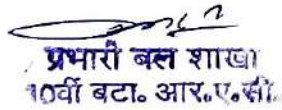 प्रभारी बल शाखा
10वीं बटा. आर.ए.सी.